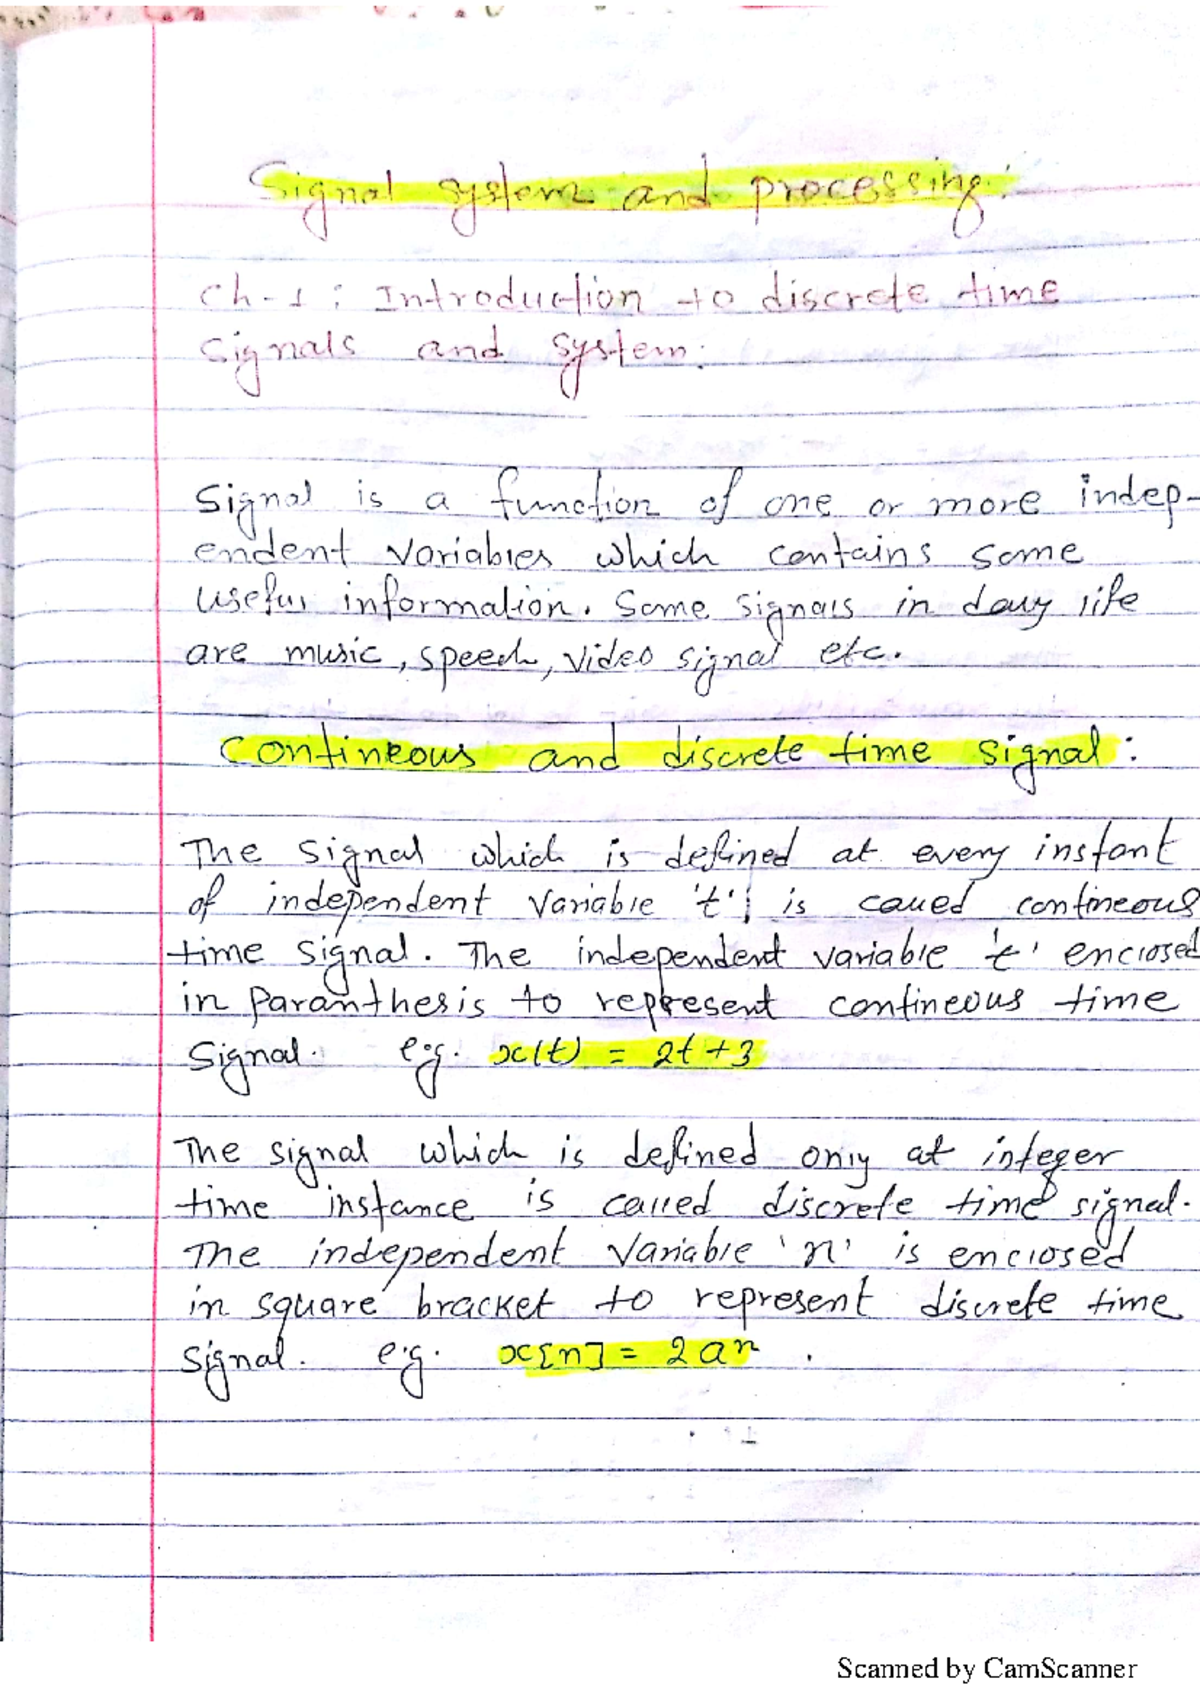 Signal system and processing:
Ch-1: Introduction to discrete time
signals and system.
Signal is a function of one or more indep-
endent variables which contains some
useful information. Some signals in daily life
are music, speech, video signal etc.
Contineous and discrete time signal:
The signal which is defined at every instant
of independent variable 't' is called contineous
time signal. The independent variable 't' enclosed
in paranthesis to represent contineous time
signal. e.g. x(t) = 2t+3
The signal which is defined only at integer
time instance is called discrete time signal.
The independent variable 'n' is enclosed
in square bracket to represent discrete time
signal. e.g. x[n] = 2aⁿ .
Scanned by CamScanner